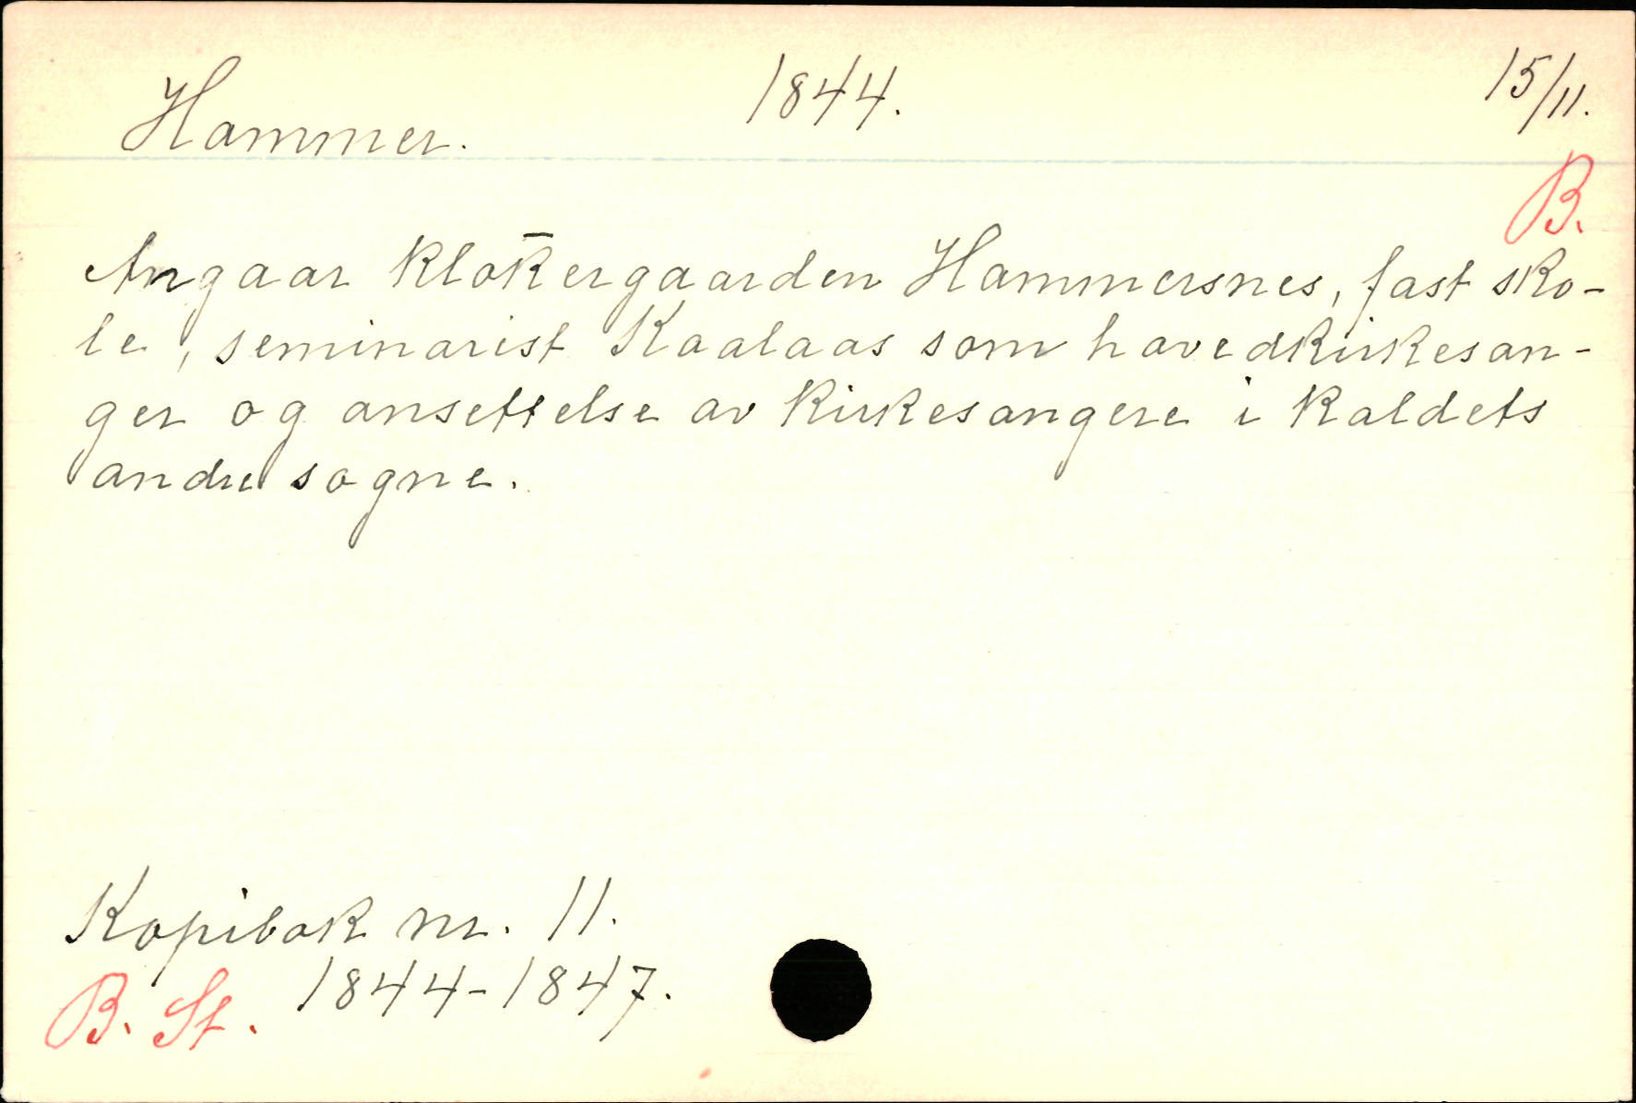 Hammer. 1844. 15/11.
B.
Angaar klokergaarden Hammersnes, fast sko-
le, seminarist Kaalaas som hovedkirkesan-
ger og ansettelse av kirkesangere i kaldets
andre sogne.
Kopibok nr. 11.
B. St. 1844-1847.